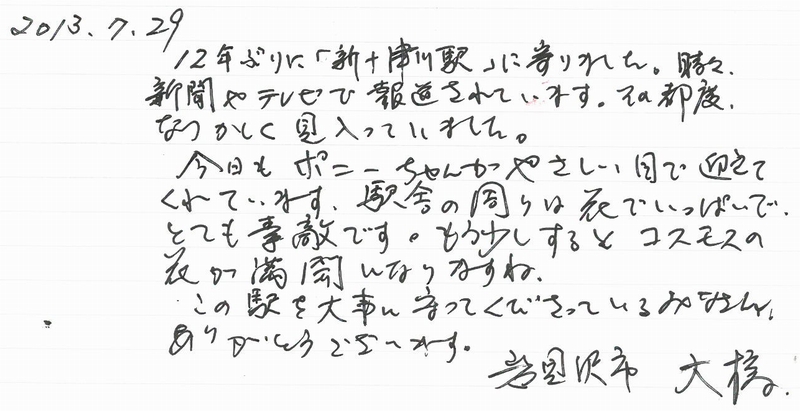 2013.7.29
12年ぶりに「新十津川駅」に寄りました。時々、
新聞やテレビで報道されています。その都度、
なつかしく見入っていました。
今日もポニーちゃんがやさしい目で迎えて
くれています。駅舎の周りは花でいっぱいで、
とても素敵です。もう少しするとコスモスの
花が満開になりますね。
この駅を大事に守ってくださっているみなさん、
ありがとうございます。
岩見沢市 大橋